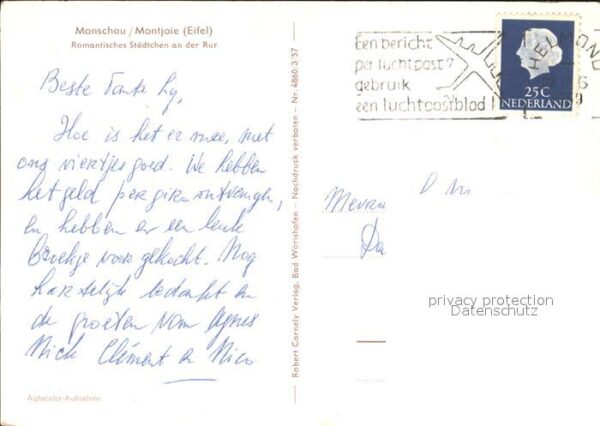 Monschau / Montjoie (Eifel)
Romantisches Städtchen an der Rur
Beste Tante Ly,
Hoe is het er mee, met
ons viertjes goed. We hebben
het geld per giro ontvangen,
en hebben er een leuk
broekje voor gekocht. Nog
hartelijk bedankt en
de groeten van Agnes
Nick Clément en Nico
Agfacolor-Aufnahme
Robert Cornely Verlag, Bad Wörishofen - Nachdruck verboten - Nr. 4860 3 57
Een bericht
per luchtpost?
gebruik
een luchtpostblad!
HELMOND
25 C
NEDERLAND
Mevrou
privacy protection
Datenschutz